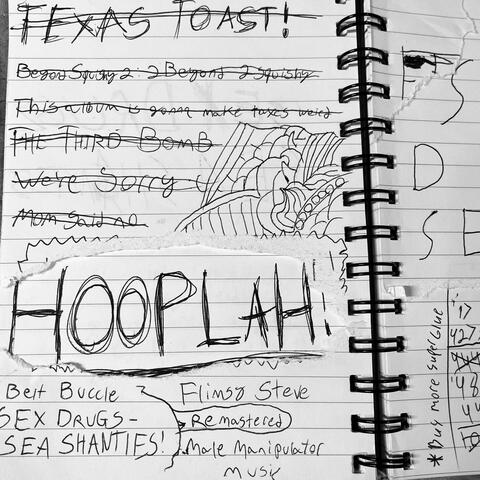 TEXAS TOAST!
Beyond Squishy 2: 2 Beyond 2 Squishy
This album is gonna make taxes weird
THE THIRD BOMB
We're Sorry
Mom Said no
HOOPLAH!
Belt Buccle
SEX DRUGS-
SEA SHANTIES!
Flimsy Steve
Remastered
Male Manipulator
Music
S
D
S E
* Buy more superglue